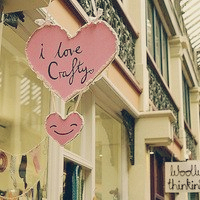 i love
Crafty
Woolly
thinking